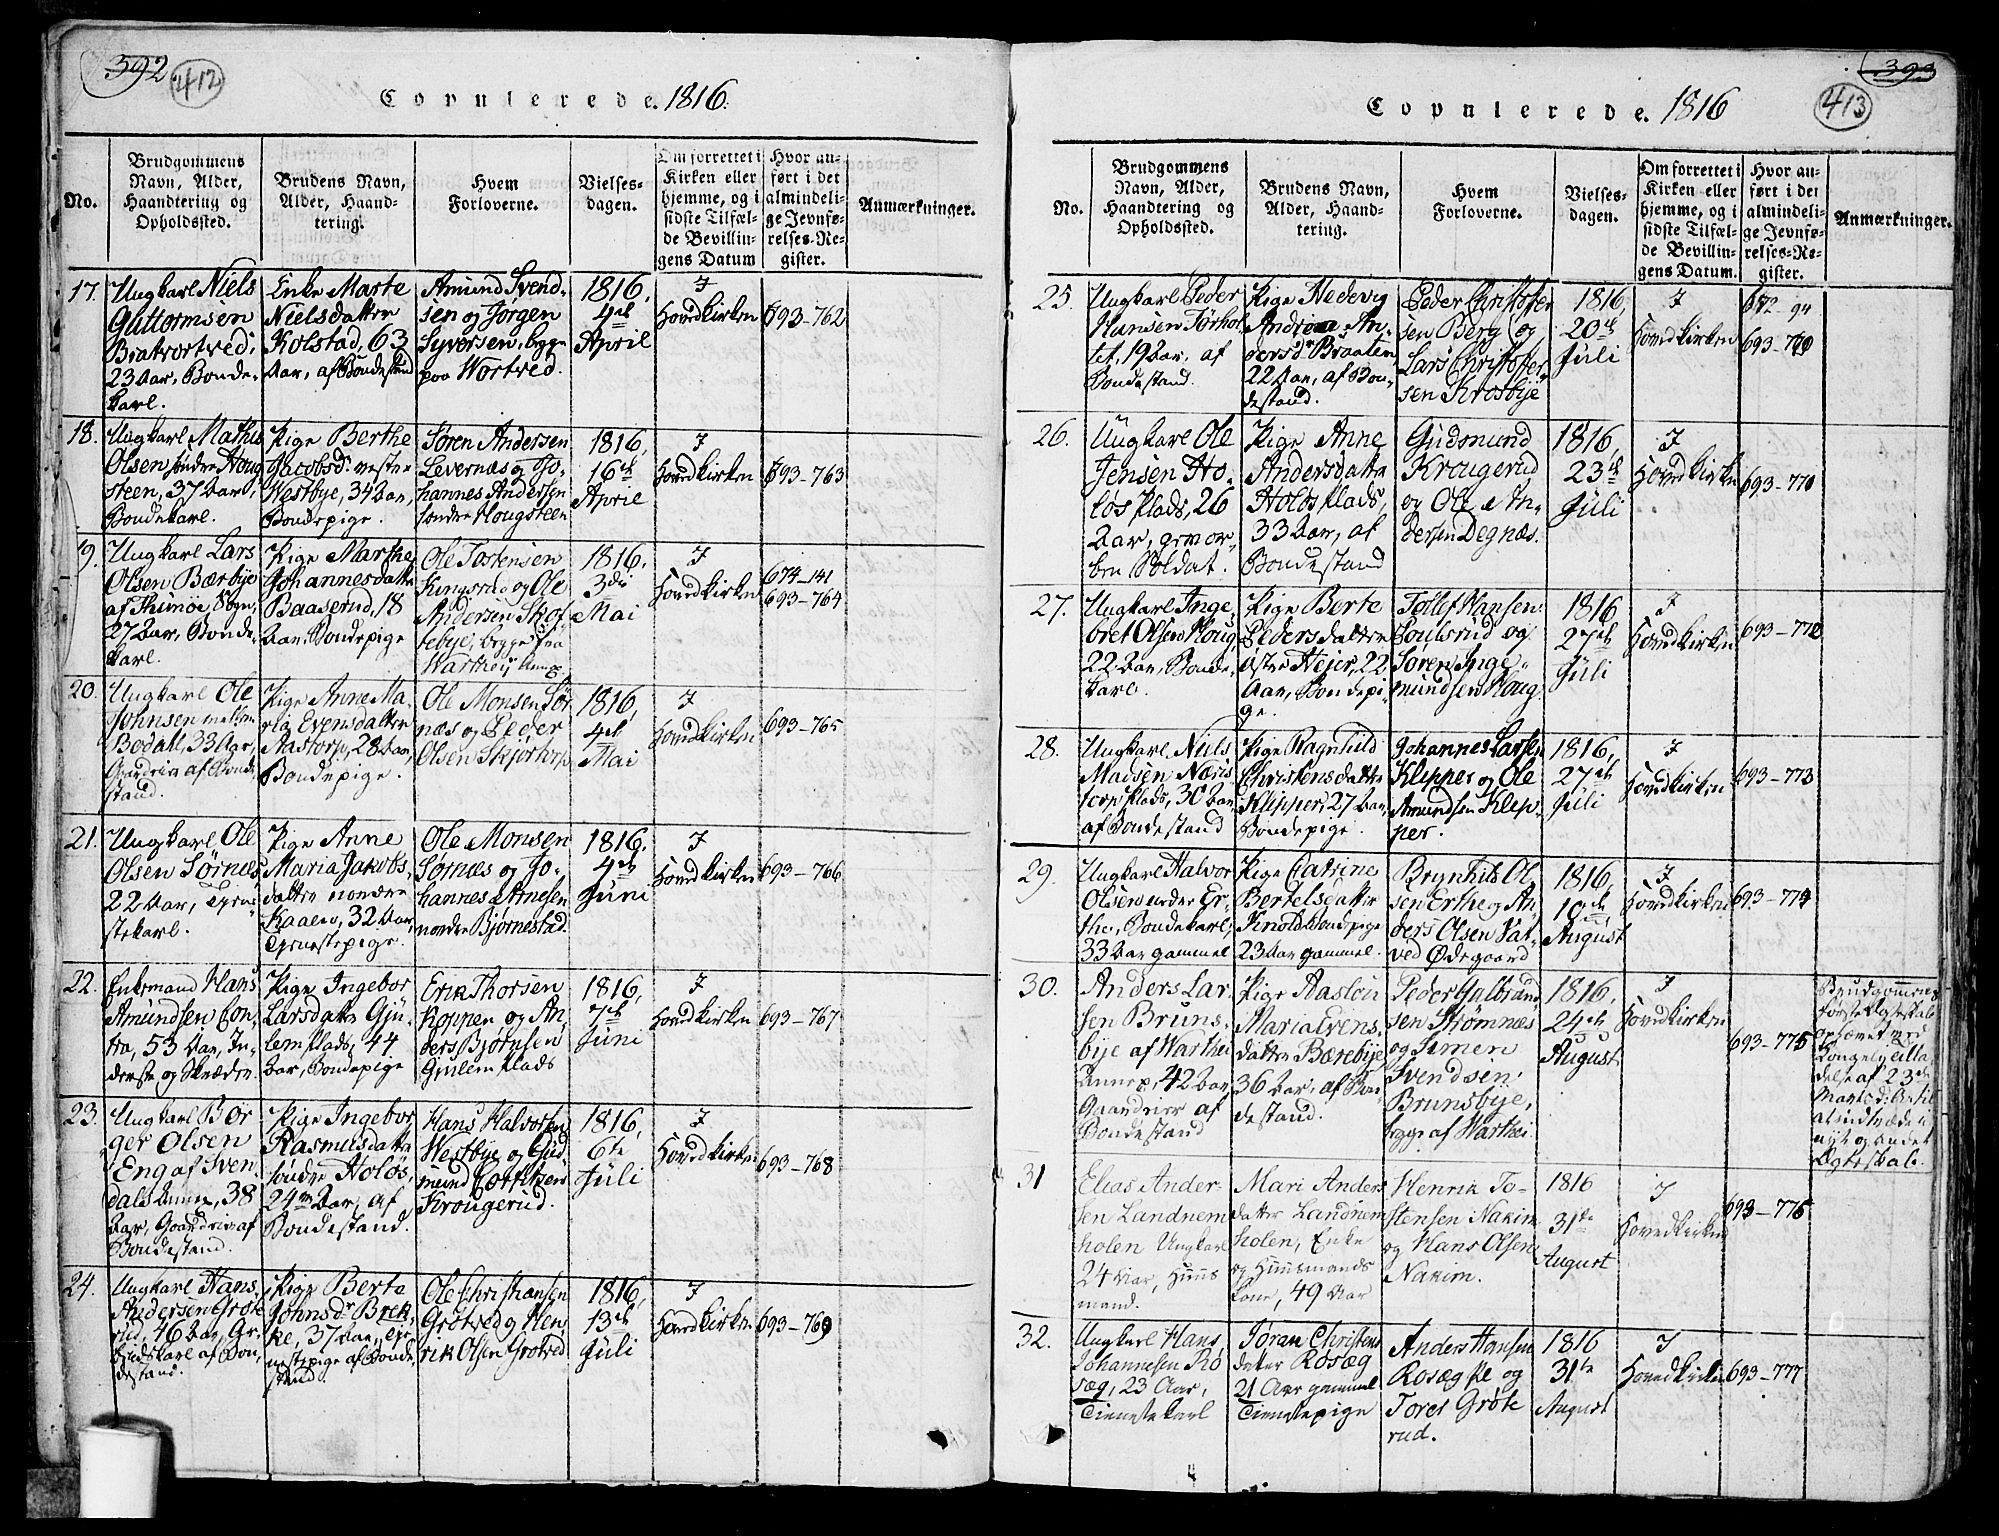 392
412
Copulerede. 1816.
No.
Brudgommens
Navn, Alder,
Haandtering og
Opholdssted.
Brudens Navn,
Alder, Haand-
tering.
Hvem
Forloverne.
Vielses-
dagen.
Om forrettet i
Kirken eller
hjemme, og i
sidste Tilfæl-
de Bevillin-
gens Datum
Hvor an-
ført i det
almindeli-
ge Jevnfø-
relses-Re-
gister.
Anmærkninger.
17.
Ungkarl Niels
Guttormsen
Bratvortved,
23 Aar, Bonde-
karl.
Enke Marte
Nielsdatter
Kolstad, 63
Aar, af Bondestand
Amund Svend-
sen og Jørgen
Syversen, begge
paa Wortved.
1816,
4de
April
I
Hovedkirken
693-762
18.
Ungkarl Mathis
Olsen søndre Houg
steen, 37 Aar,
Bondekarl.
Pige Berthe
Jacobsdr. vestre
Westbye, 34 Aar,
Bondepige.
Søren Andersen
Levernæs og Jo-
hannes Andersen
søndre Hougsteen
1816,
16de
April
I
Hovedkirken
693-763
19.
Ungkarl Lars
Olsen Bærbye
af Thimøe Sogn,
27 Aar, Bonde-
karl.
Pige Marthe
Johannesdatter
Baaserud, 18
Aar, Bondepige
Ole Tostensen
Kingsrud og Ole
Andersen Skof
tebye, begge fra
Wartheig Annex
1816,
3die
Mai
I
Hovedkirken
674-141
693-764
20.
Ungkarl Ole
Johnsen mellem
Bodahl, 33 Aar,
Gaardriver af Bonde
stand.
Pige Anne Ma-
ria Evensdatter
Aastorp, 28 Aar,
Bondepige.
Ole Monsen Sør
næs og Peder
Olsen Skjortorp
1816,
4de
Mai
I
Hovedkirken
693-765
21.
Ungkarl Ole
Olsen Sørnæs,
22 Aar, Tjene-
stekarl.
Pige Anne
Maria Jakobs-
datter nordre
Kaaen, 32 Aar,
Tjenestepige.
Ole Monsen
Sørnæs og Jo-
hannes Arnesen
nordre Bjørnestad.
1816,
4de
Juni
I
Hovedkirken
693-766
22.
Enkemand Hans
Amundsen Con-
tra, 53 Aar, In-
derste og Skræder.
Pige Ingebor
Larsdatter Gju-
lem Plads, 44
Aar, Bondepige
Erik Thorsen
Koppen og An-
ders Bjørnsen
Gjulem Plads
1816,
7de
Juni
I
Hovedkirken
693-767
23.
Ungkarl Bør
ger Olsen
Eng af Sven
dals Annex, 38
Aar, Gaardriver af
Bondestand.
Pige Ingebor
Rasmusdatter
søndre Holøs,
24 Aar, af
Bondestand.
Hans Halvorsen
Westbye og Gud
mund
Krougerud.
1816,
6te
Juli
I
Hovedkirken
693-768
24.
Ungkarl Hans
Andersen Grøte
rud, 46 Aar, Ar-
beidskarl af Bon-
destand.
Pige Berte
Johnsdr. Brek
ke, 37 Aar, Tje-
nestepige af Bonde
stand.
Ole Christiansen
Grøtved og Hen-
rik Olsen Grotved
1816,
13de
Juli
I
Hovedkirken
693-769
393
413
Copulerede. 1816
No.
Brudgommens
Navn, Alder,
Haandtering og
Opholdssted.
Brudens Navn,
Alder, Haand-
tering.
Hvem
Forloverne.
Vielses-
dagen.
Om forrettet i
Kirken eller
hjemme, og i
sidste Tilfæl-
de Bevillin-
gens Datum.
Hvor an-
ført i det
almindeli-
ge Jevnfø-
relses-Re-
gister.
Anmærkninger.
25.
Ungkarl Peder
Hansen Tørhol
tet, 19 Aar, af
Bondestand.
Pige Hedevig
Andrine An-
dersdr. Braaten
22 Aar, af Bon-
destand.
Peder Christofer
sen Berg og
Lars Christofer-
sen Krosbye
1816,
20de
Juli
I
Hovedkirken
672 94
693-770
26.
Ungkarl Ole
Jensen Ho-
løs Plads, 26
Aar, gevor-
ben Soldat.
Pige Anne
Andersdatter
Holøs Plads,
33 Aar, af
Bondestand
Gudmund
Krougerud
og Ole An-
dersen Degnæs.
1816,
23de
Juli
I
Hovedkirken
693-771
27.
Ungkarl Inge-
bret Olsen Houg
22 Aar, Bonde-
karl.
Pige Berte
Pedersdatter
østre Hejer, 22
Aar, Bondepi-
ge.
Tollef Hansen
Poulsrud og
Søren Inge-
mundsen Houg
1816
27de
Juli
I
Hovedkirken
693-772
28.
Ungkarl Niels
Madsen Næris
torp Plads, 30 Aar
af Bondestand
Pige Ragnhild
Christensdatter
Klepper, 27 Aar
Bondepige.
Johannes Larsen
Klepper og Ole
Amundsen Klep-
per.
1816,
27de
Juli
I
Hovedkirken
693-773
29.
Ungkarl Halvor
Olsen nedre Er-
the, Bondekarl,
33 Aar gammel
Pige Catrine
Bertelsdatter
Knold Bondepige
23 Aar gammel.
Brynhild Ol-
sen Erthe og An-
ders Olsen Vat-
ved Ødegaard
1816,
10de
August
I
Hovedkirken
693-774
30.
Anders Lar-
sen Bruns-
bye af Warthei
Annex, 42 Aar
Gaardriver af
Bondestand
Pige Aaslou
Maria Evens
datter Bærebye
36 Aar, af Bon
destand.
Peder Gulbrand
sen Strømnæs
og Simen
Svendsen
Brunsbye,
begge af Warthei.
1816,
24de
August
I
Hovedkirken
693-775
Brudgommens
første Ægteskab
ophævet ved
Kongelig Tilla
delse af 23de
Martsd:
at indtræde i
nyt og andet
Ægteskab.
31
Elias Ander-
sen Landnem
holen Ungkarl
24 Aar, Huus
mand.
Mari Anders
datter Landnem
holen, Enke
og Huusmands
kone, 49 Aar
Henrik To-
stensen Nakim
og Hans Olsen
Nakim.
1816
31te
August
I
Hovedkirken
693-776
32.
Ungkarl Hans
Johannesen Rø
sæg, 23 Aar,
Tienestekarl
Jøran Christens
datter Rosæg
21 Aar gammel
Tienestepige
Anders Hansen
Rosæg og
Tores Grøte
rud.
1816
31te
August
I
Hovedkirken
693-777